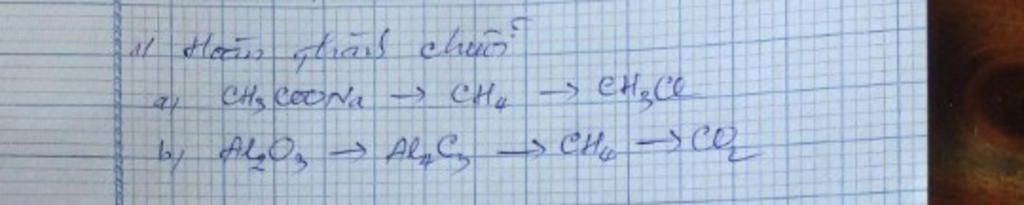 1/ Hoàn thành chuỗi
a) CH₃COONa → CH₄ → CH₃Cl
b) Al₂O₃ → Al₄C₃ → CH₄ → CO₂